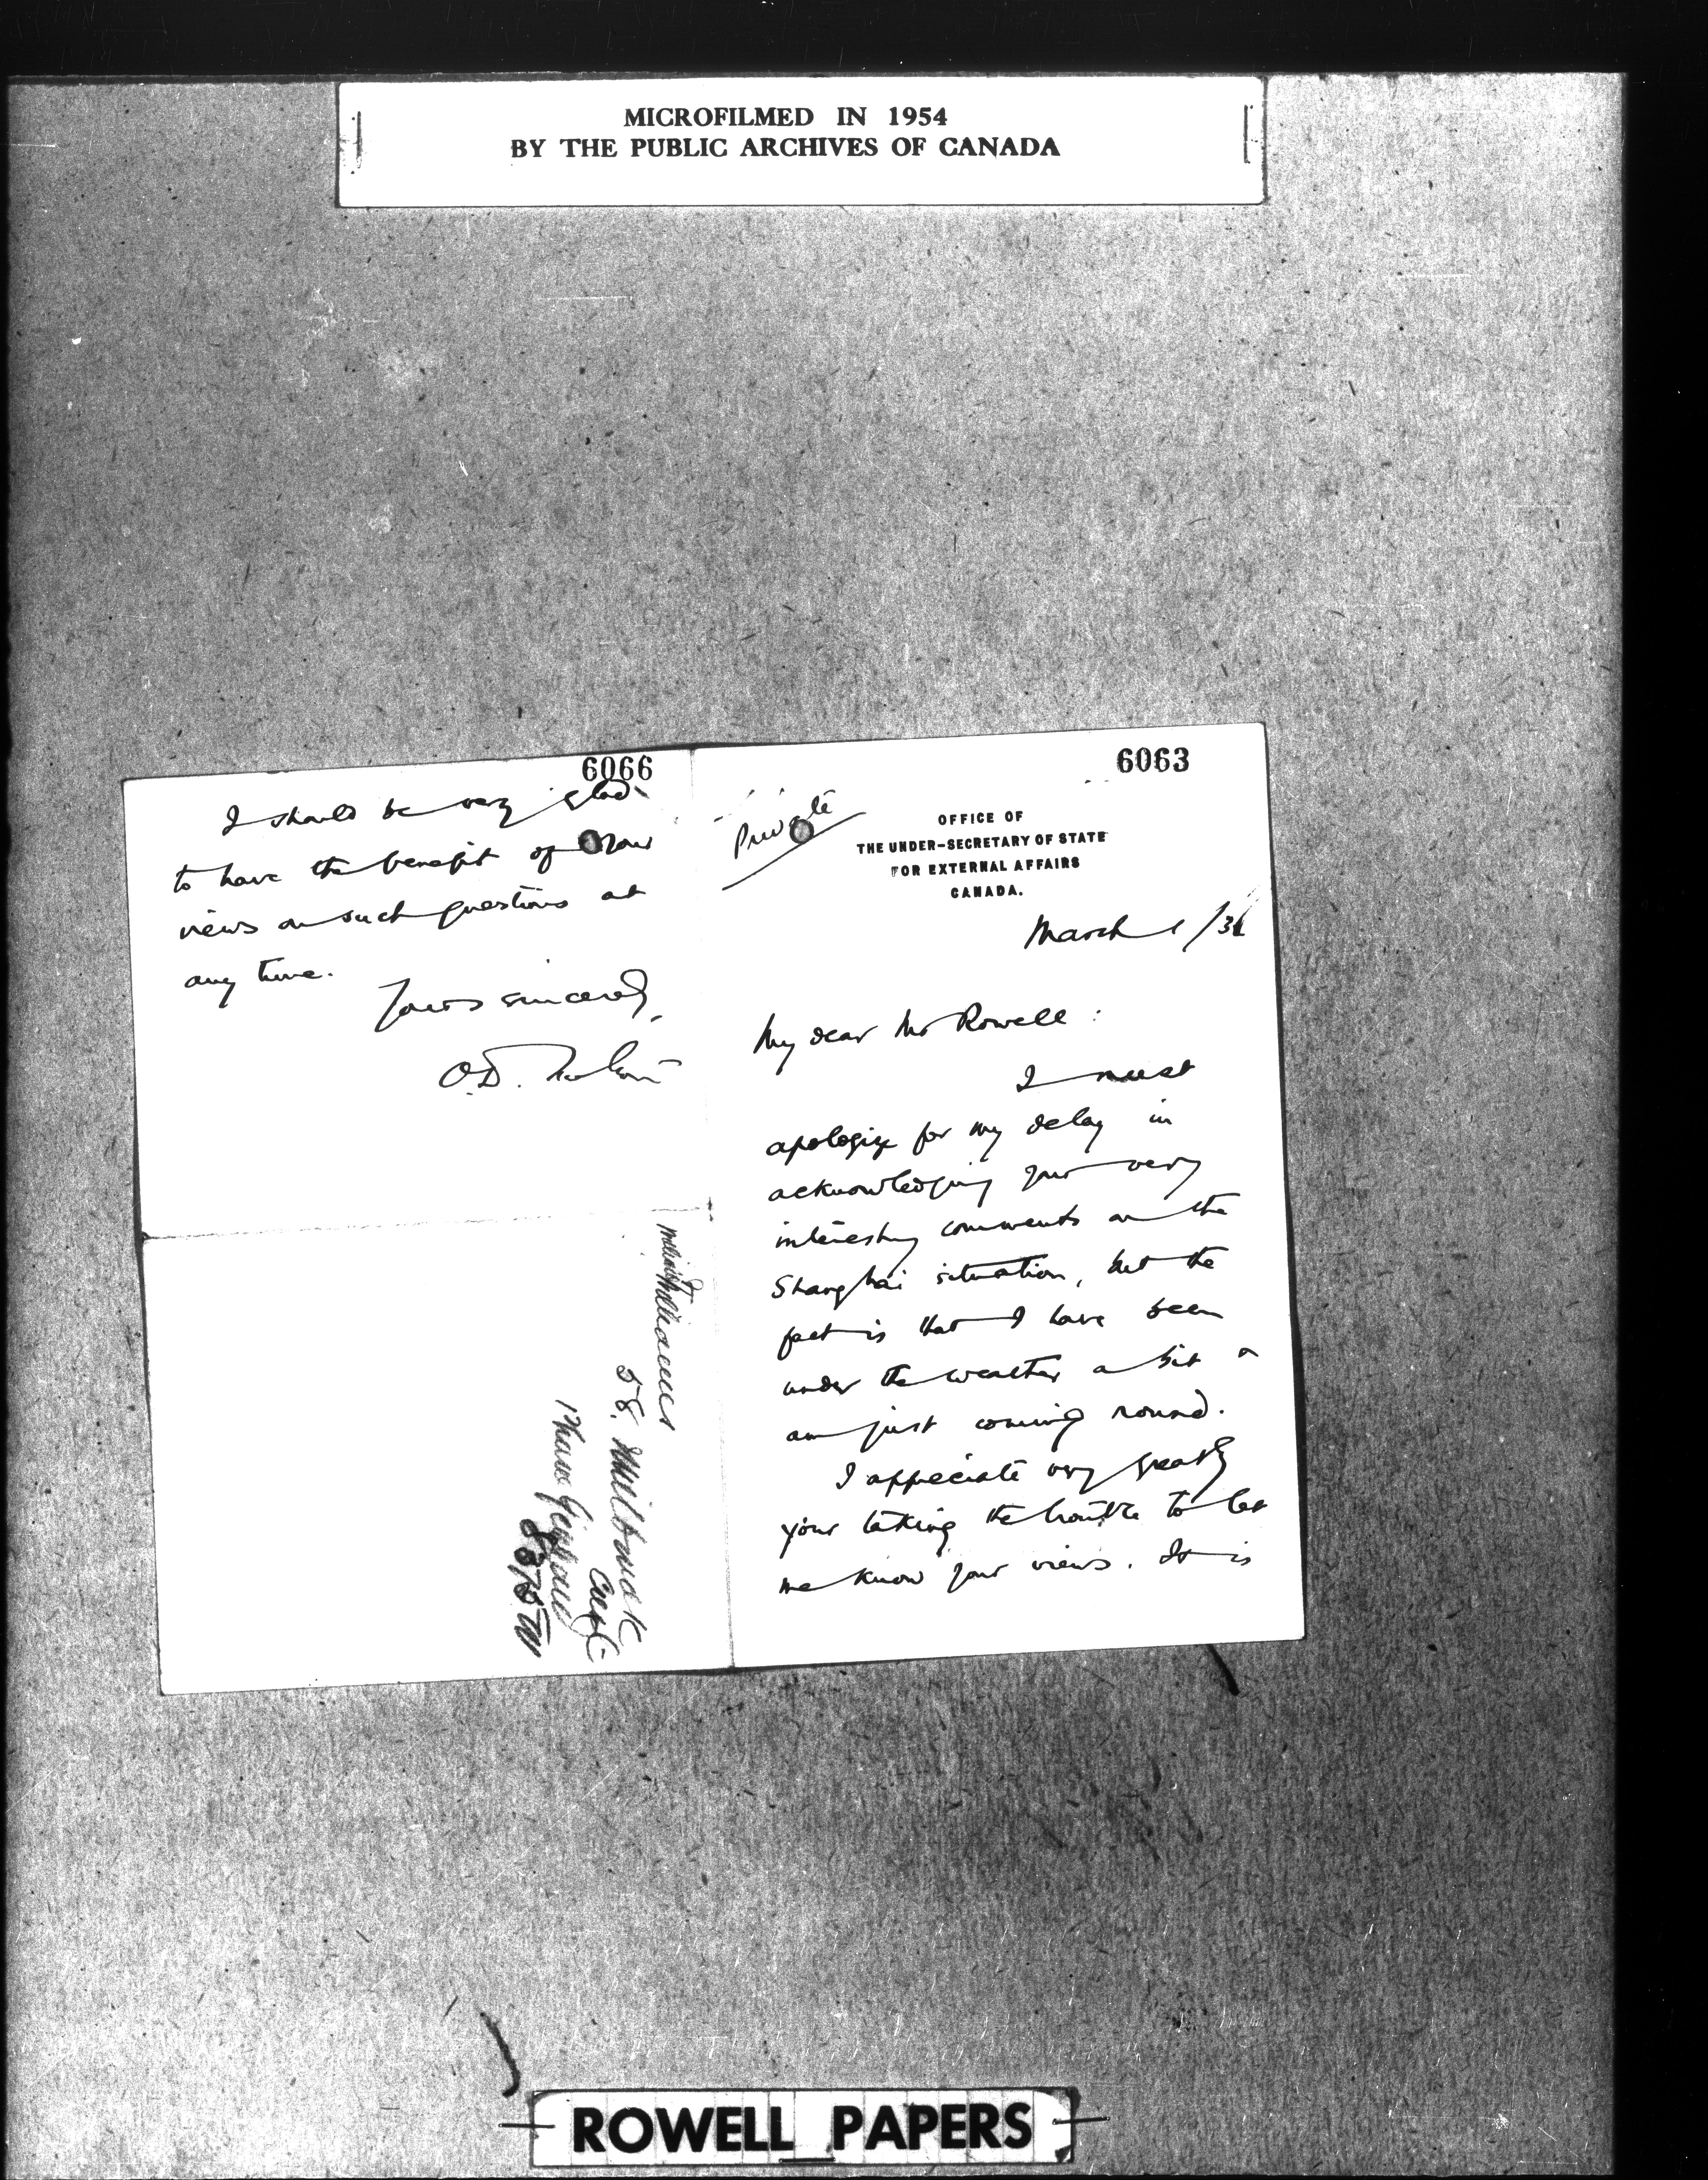 MICROFILMED IN 1954
BY THE PUBLIC ARCHIVES OF CANADA
6066
I should be very glad
to have the benefit of your
views on such questions at
any time.
Yours sincerely,
O.D. Skelton
6063
Private
OFFICE OF
THE UNDER-SECRETARY OF STATE
FOR EXTERNAL AFFAIRS
CANADA.
March 1/32
My dear Mr Rowell:
I must
apologize for my delay in
acknowledging your very
interesting comments on the
Shanghai situation, but the
fact is that I have been
under the weather a bit &
am just coming round.
I appreciate very greatly
your taking the trouble to let
me know your views. It is
58. Milbank
8375W
ROWELL PAPERS